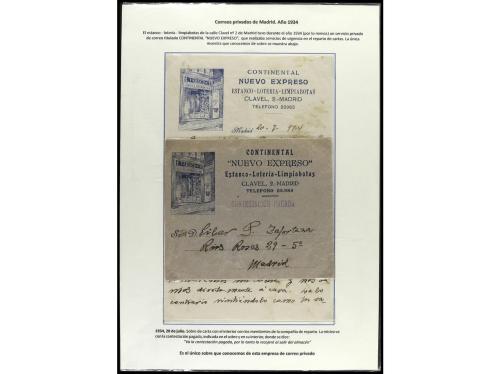 Correos privados de Madrid. Año 1934
El estanco - lotería - limpiabotas de la calle Clavel nº 2 de Madrid tuvo durante el año 1934 (por lo menos) un servicio privado
de correo titulado CONTINENTAL "NUEVO EXPRESO", que realizaba servicios de urgencia en el reparto de cartas. La única
muestra que conocemos de sobre se muestra abajo.
CONTINENTAL
NUEVO EXPRESO
ESTANCO-LOTERIA-LIMPIABOTAS
CLAVEL, 2.-MADRID
TELEFONO
Madrid 20-7-
CONTINENTAL
"NUEVO EXPRESO"
Estanco-Lotería-Limpiabotas
CLAVEL, 2.-MADRID
TELEFONO
CONTESTACION PAGADA
29-5º
Madrid
1934, 20 de julio. Sobre de carta con el interior con los membretes de la compañía de reparto. La misiva va
con la contestación pagada, indicada en el sobre y en su interior, donde se dice:
"Va la contestación pagada, por lo tanto la recogeré al salir del almacén"
Es el único sobre que conocemos de esta empresa de correo privado